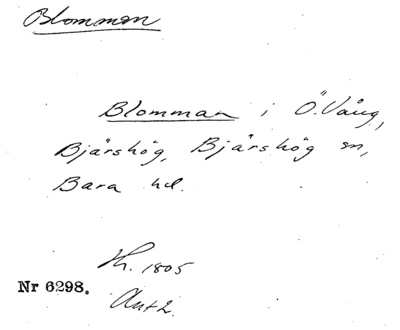 Blommen
Blomman i Ö. Vång,
Bjärshög, Bjärshög sn,
Bara hd.
Th. 1805
Nr 6298.
Akt 2.